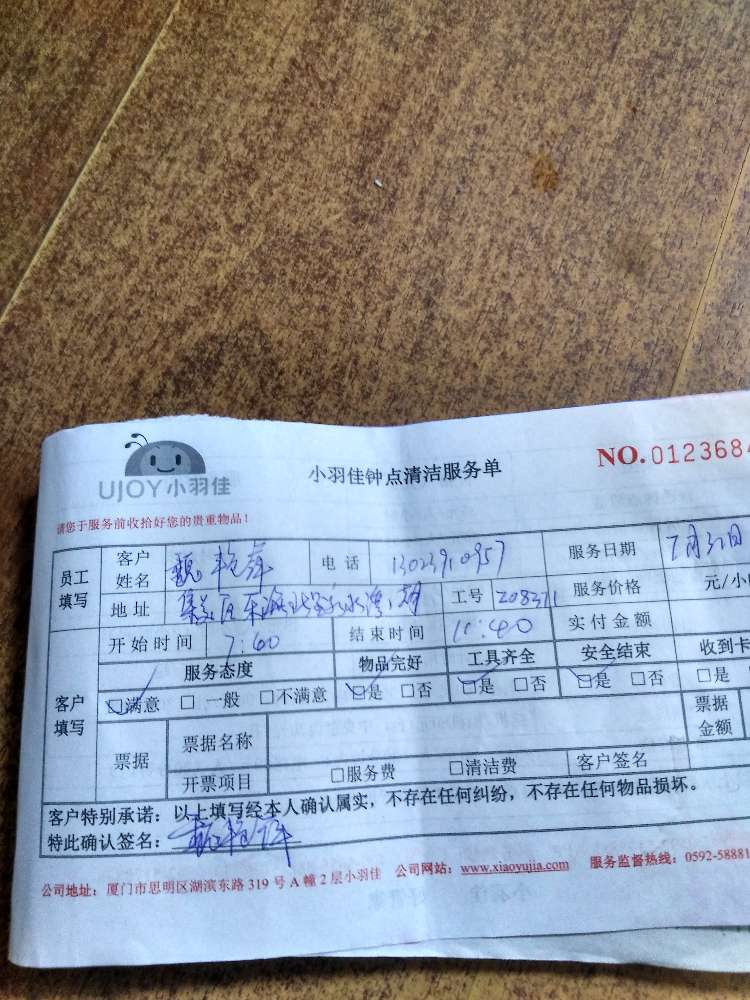 UJOY小羽佳
小羽佳钟点清洁服务单
NO.012368
请您于服务前收拾好您的贵重物品！
员工填写 客户姓名 魏艳萍 电话 服务日期 7月31日
地址 集美区 工号 服务价格 元/小
开始时间 7:40 结束时间 11:40 实付金额
客户填写 服务态度 物品完好 工具齐全 安全结束 收到卡
☑满意 □一般 □不满意 ☑是 □否 ☑是 □否 ☑是 □否 □是
票据 票据名称 票据金额
开票项目 □服务费 □清洁费 客户签名
客户特别承诺：以上填写经本人确认属实，不存在任何纠纷，不存在任何物品损坏。
特此确认签名：魏艳萍
公司地址：厦门市思明区湖滨东路 319 号 A 幢 2 层小羽佳 公司网站：www.xiaoyujia.com 服务监督热线：0592-58881